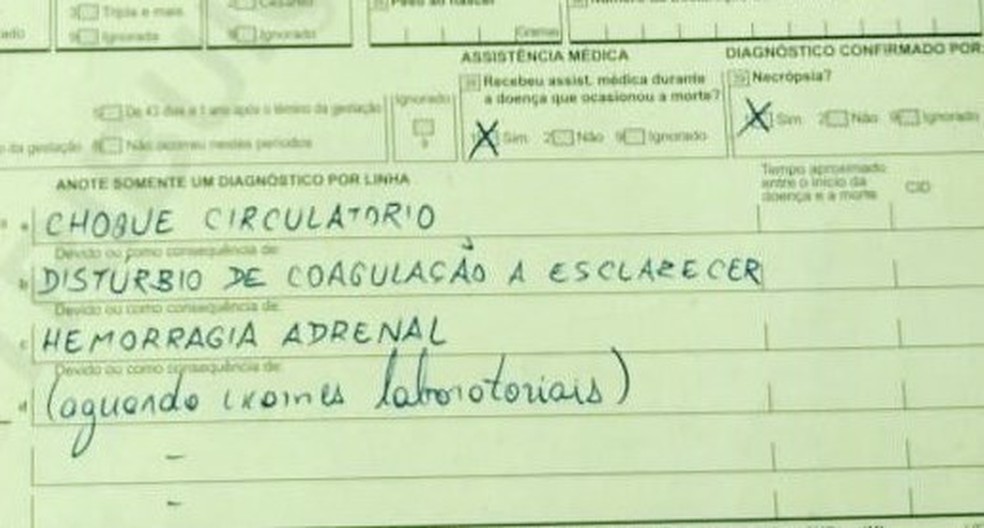 3 Tripla e mais
9 Ignorada
9 Ignorado
Peso ao nascer
Gramas
ASSISTÊNCIA MÉDICA
DIAGNÓSTICO CONFIRMADO POR:
Recebeu assist. médica durante
a doença que ocasionou a morte?
1 Sim 2 Não 9 Ignorado
Necrópsia?
Sim 2 Não 9 Ignorado
De 43 dias a 1 ano após o término da gestação
Ignorado
9
da gestação Não ocorreu nestes períodos
ANOTE SOMENTE UM DIAGNÓSTICO POR LINHA
Tempo aproximado
entre o início da
doença e a morte
CID
a CHOQUE CIRCULATORIO
Devido ou como consequência de:
b DISTURBIO DE COAGULAÇÃO A ESCLARECER
Devido ou como consequência de:
c HEMORRAGIA ADRENAL
Devido ou como consequência de:
d (aguardo exames laboratoriais)